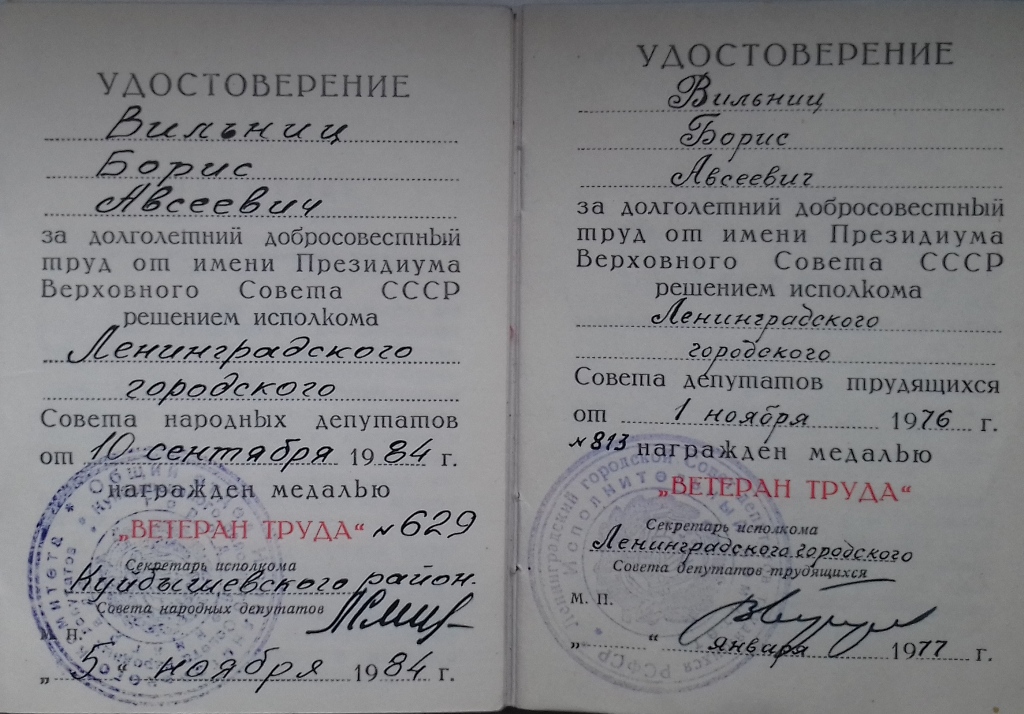 УДОСТОВЕРЕНИЕ
Вильниц
Борис
Авсеевич
за долголетний добросовестный
труд от имени Президиума
Верховного Совета СССР
решением исполкома
Ленинградского
городского
Совета народных депутатов
от 10 сентября 1984 г.
награжден медалью
„ВЕТЕРАН ТРУДА“ № 629
Секретарь исполкома
Куйбышевского район.
Совета народных депутатов
М. П.
„5“ ноября 1984 г.
УДОСТОВЕРЕНИЕ
Вильниц
Борис
Авсеевич
за долголетний добросовестный
труд от имени Президиума
Верховного Совета СССР
решением исполкома
Ленинградского
городского
Совета депутатов трудящихся
от 1 ноября 1976 г.
№ 813 награжден медалью
„ВЕТЕРАН ТРУДА“
Секретарь исполкома
Ленинградского городского
Совета депутатов трудящихся
М. П.
„ “ января 1977 г.